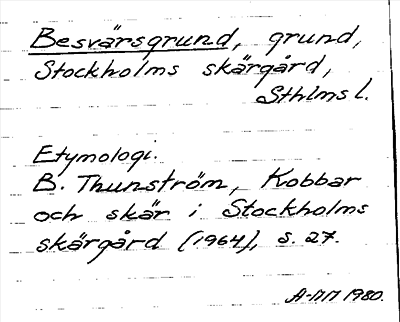 Besvärsgrund, grund,
Stockholms skärgård,
Sthlms l.
Etymologi.
B. Thunström, Kobbar
och skär i Stockholms
skärgård (1964), s. 27.
A-MM 1980.